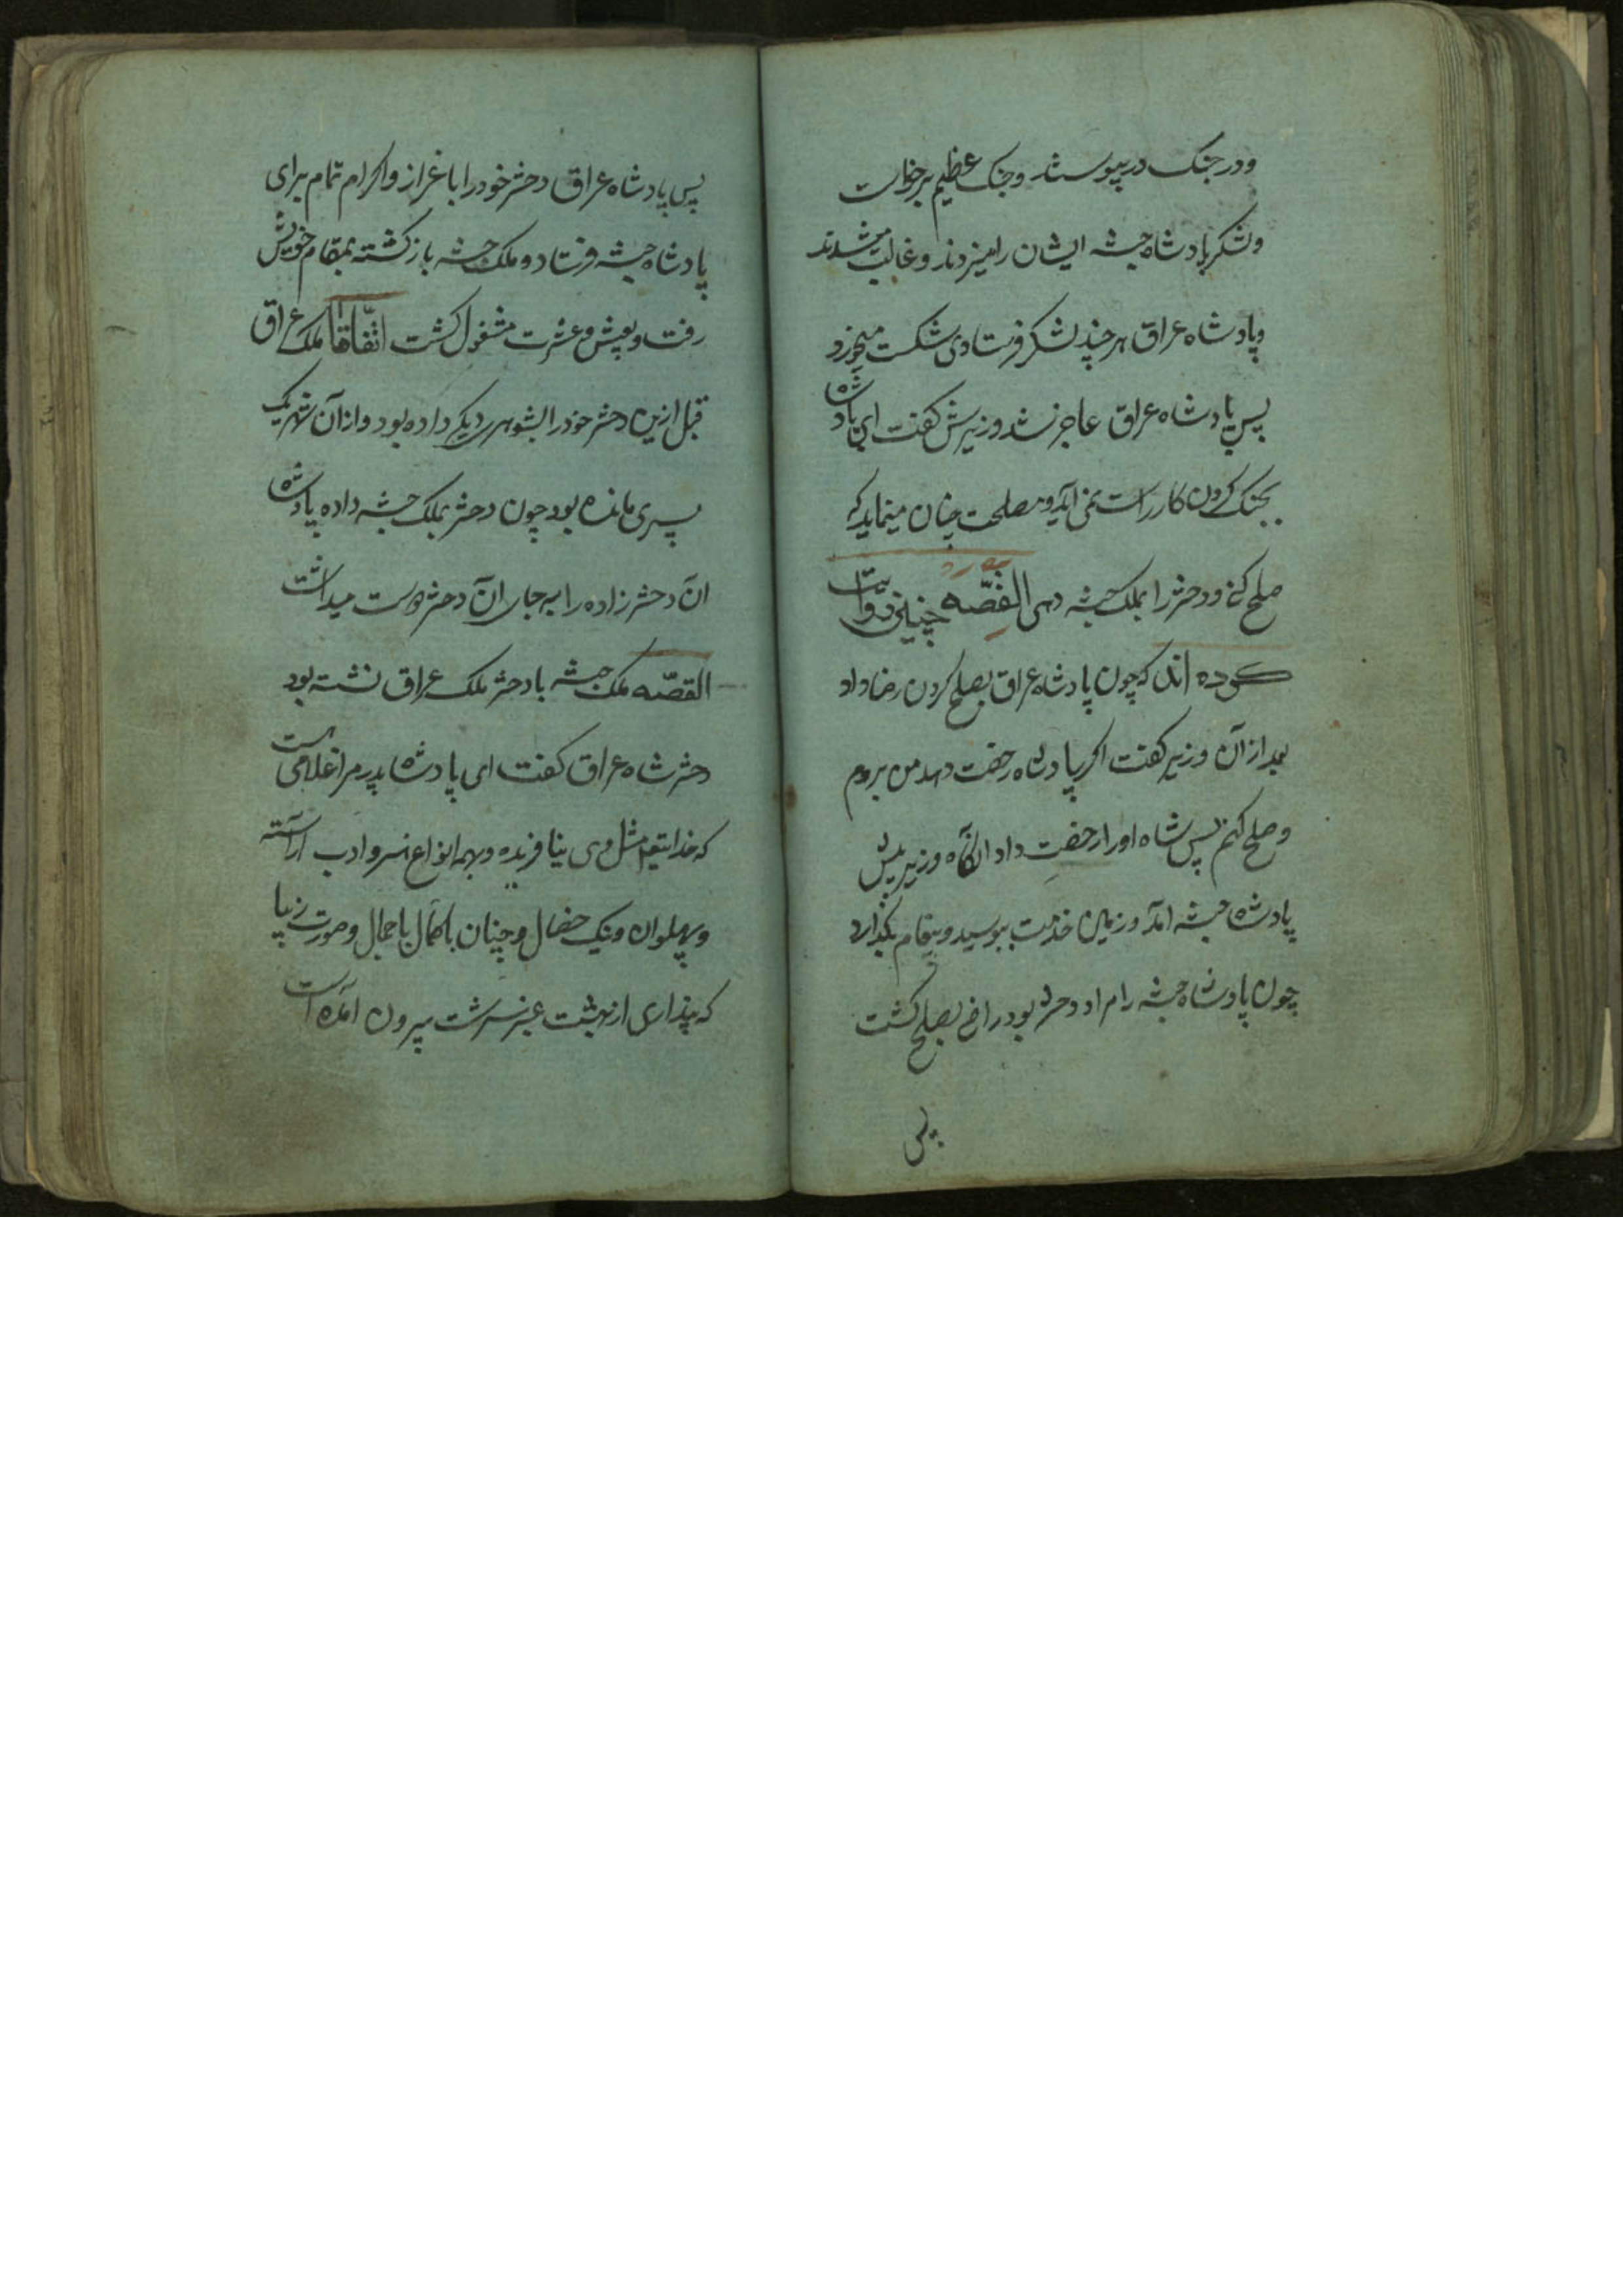 ودر جنک در پیوستند وجنک عظیم برخواست
ولشکر پادشاه حبشه ایشان را میزدند و غالب میشدند
وپادشاه عراق هر چند لشکر فرستادی شکست میخورد
پس پادشاه عراق عاجز شد وزیرش کفت ای پادشاه
بجنک کردن کار راست نمی آید ومصلحت چنان مینماید که
صلح کنی ودختر را بملک حبشه دهی القصّه چنین روایت
کرده اند که چون پادشاه عراق بصلح کردن رضا داد
بعد از آن وزیر کفت اکر پادشاه رخصت دهد من بروم
وصلح کنم پس شاه اورا رخصت داد انکاه وزیر پیش
پادشاه حبشه آمد وزمین خدمت ببوسید وپیغام بکذارد
چون پادشاه حبشه را مراد دختر بود راضی بصلح کشت
پس
پس پادشاه عراق دختر خودرا با عزاز واکرام تمام برای
پادشاه حبشه فرستاد و ملک حبشه باز کشته بمقام خویش
رفت وبعیش وعشرت مشغول کشت اتّفاقا ملک عراق
قبل ازین دختر خودرا بشوهر دیکر داده بود واز آن شوهر یک
پسری مانده بود چون دختر بملک حبشه داده پادشاه
ان دختر زاده را به جای ان دختر دوست میداشت
القصّه ملک حبشه با دختر ملک عراق نشسته بود
دختر شاه عراق کفت ای پادشاه پدر مرا غلامی است
که خدایتعالی مثل وی نیافریده وبهمه انواع هنر وادب آراسته
وپهلوان ونیک خصال وچنان با کمال با جمال وصورت زیبا
که پنداری از بهشت عنبر سرشت بیرون آمده است